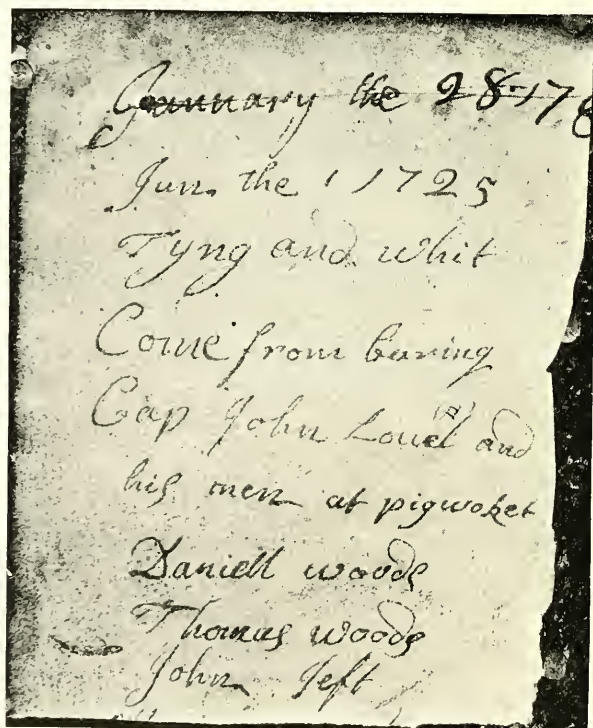 January the 28 17
Jun. the 1 1725
Tyng and whit
Come from buring
Cap John Louel and
his men at pigwoket
Daniell woods
Thomas woods
John Jeft